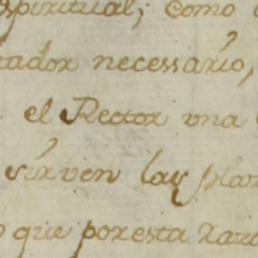 spiritual; como
tador necessario,
el Rector vna
sirven las plaz
que por esta razo